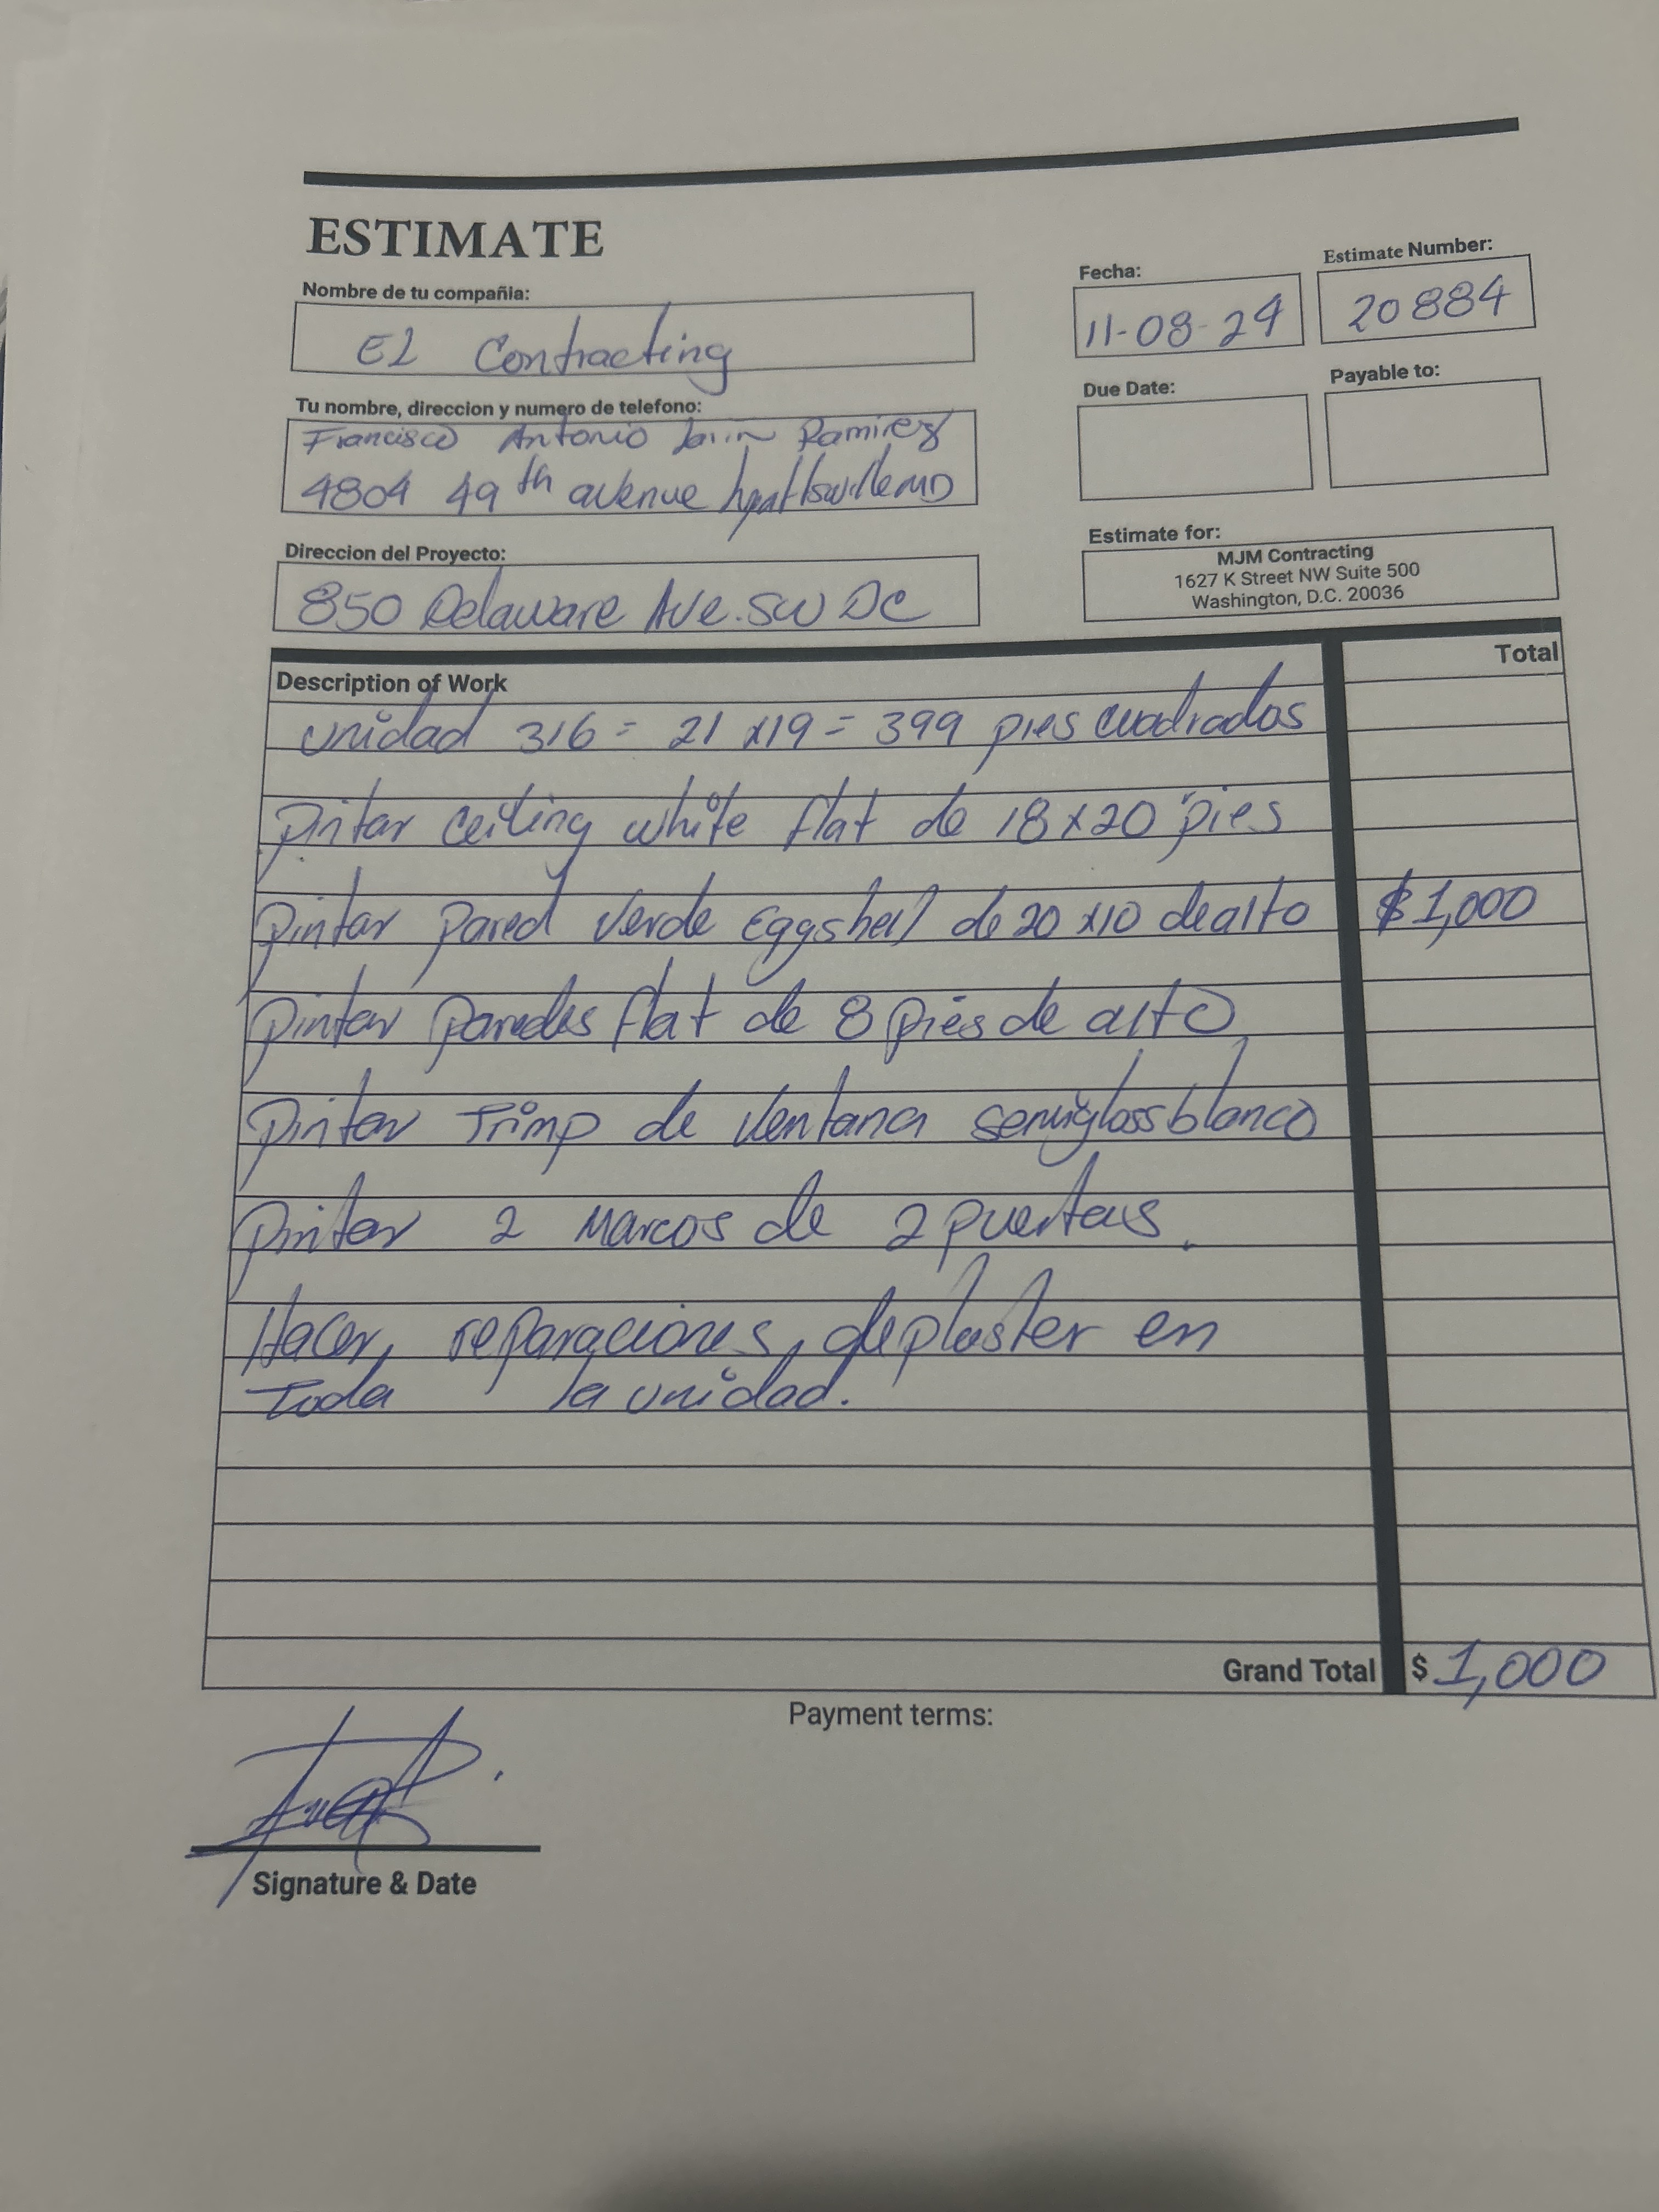 ESTIMATE
Nombre de tu compañia:
EL Contracting
Fecha:
11-08-24
Estimate Number:
20884
Tu nombre, direccion y numero de telefono:
Francisco Antonio Ramirez
4804 49th avenue hyattsville MD
Due Date:
Payable to:
Direccion del Proyecto:
850 Delaware Ave. SW DC
Estimate for:
MJM Contracting
1627 K Street NW Suite 500
Washington, D.C. 20036
Description of Work
Total
unidad 316 = 21 x19 = 399 pies cuadrados
pintar ceiling white flat de 18x20 pies
pintar pared verde Eggshell de 20 x10 de alto $1,000
pintar paredes flat de 8 pies de alto
pintar Trimp de ventana semigloss blanco
pintar 2 Marcos de 2 puertas.
Hacer, reparaciones, de plaster en
Toda la unidad.
Grand Total $1,000
Payment terms:
Signature & Date